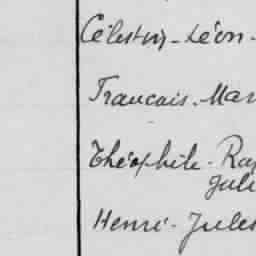 Célestin-Léon-
Francais-Mar
Théophile-Ra
Jul
Henri-Jules